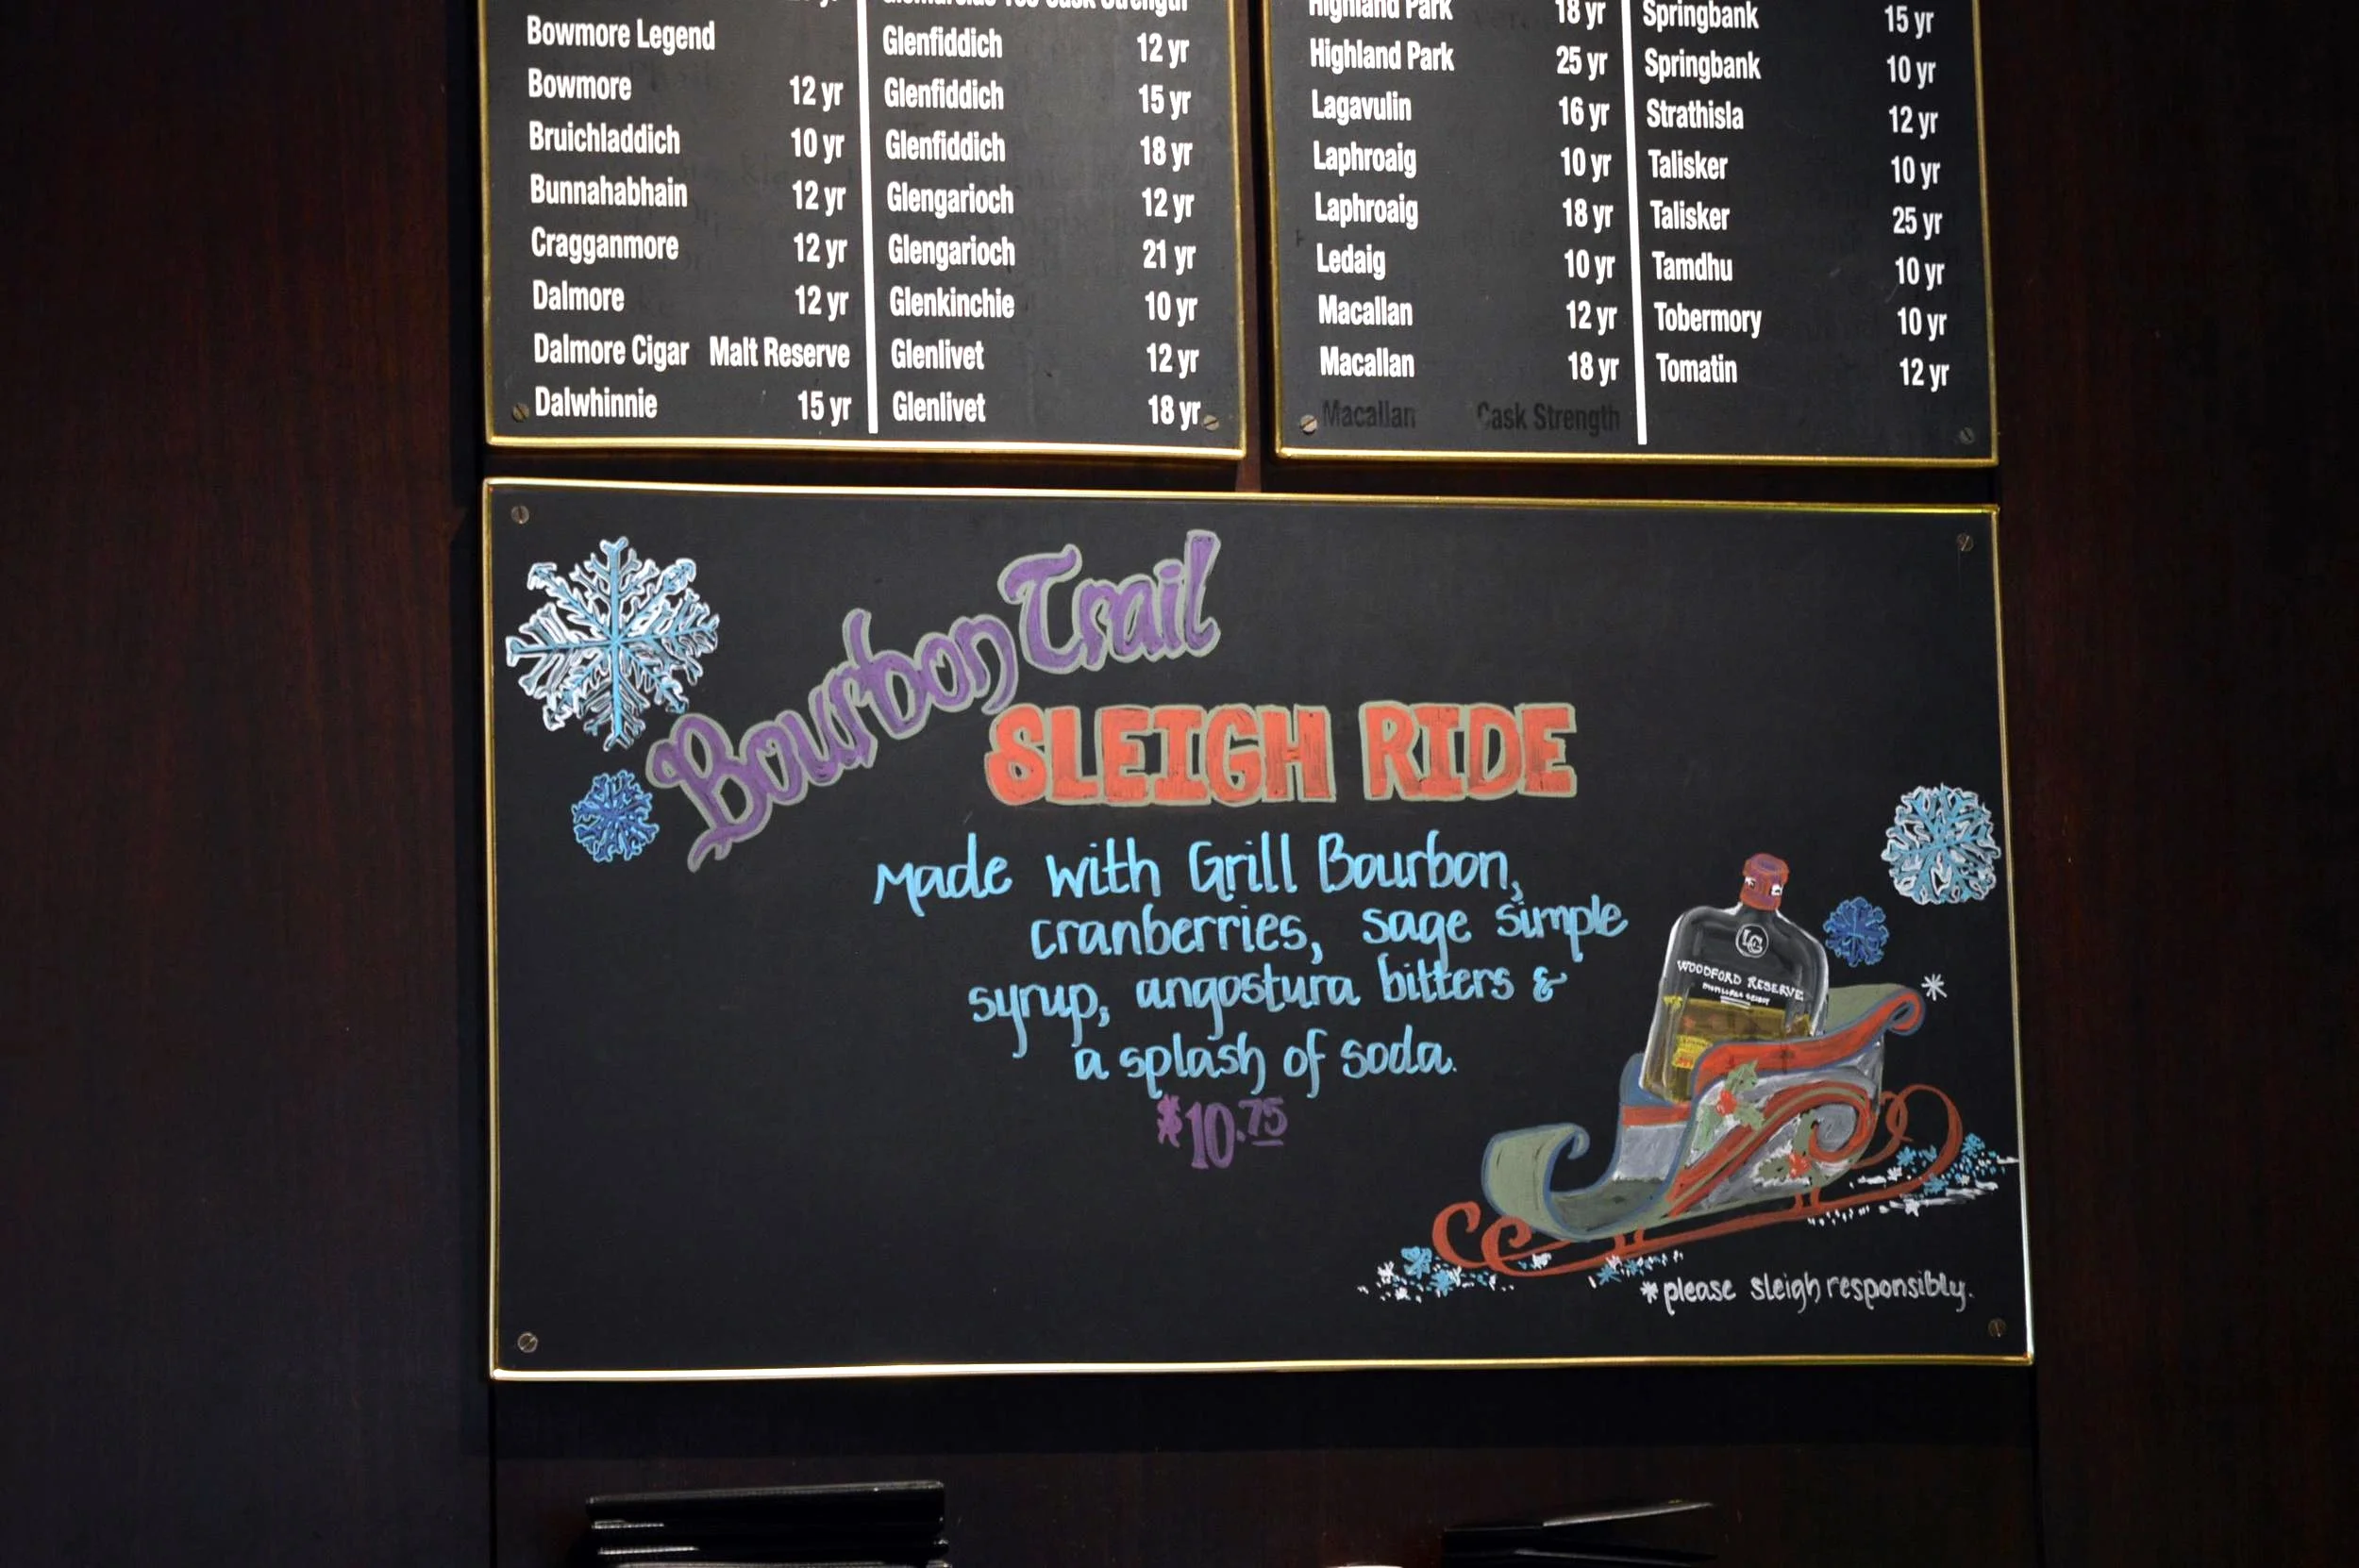 Bowmore Legend
Bowmore 12 yr
Bruichladdich 10 yr
Bunnahabhain 12 yr
Cragganmore 12 yr
Dalmore 12 yr
Dalmore Cigar Malt Reserve
Dalwhinnie 15 yr
Cask Strength
Glenfiddich 12 yr
Glenfiddich 15 yr
Glenfiddich 18 yr
Glengarioch 12 yr
Glengarioch 21 yr
Glenkinchie 10 yr
Glenlivet 12 yr
Glenlivet 18 yr
Highland Park 18 yr
Highland Park 25 yr
Lagavulin 16 yr
Laphroaig 10 yr
Laphroaig 18 yr
Ledaig 10 yr
Macallan 12 yr
Macallan 18 yr
Macallan Cask Strength
Springbank 15 yr
Springbank 10 yr
Strathisla 12 yr
Talisker 10 yr
Talisker 25 yr
Tamdhu 10 yr
Tobermory 10 yr
Tomatin 12 yr
Bourbon Trail
SLEIGH RIDE
Made with Grill Bourbon,
cranberries, sage simple
syrup, angostura bitters &
a splash of soda.
$10.75
WOODFORD RESERVE
*please sleigh responsibly.